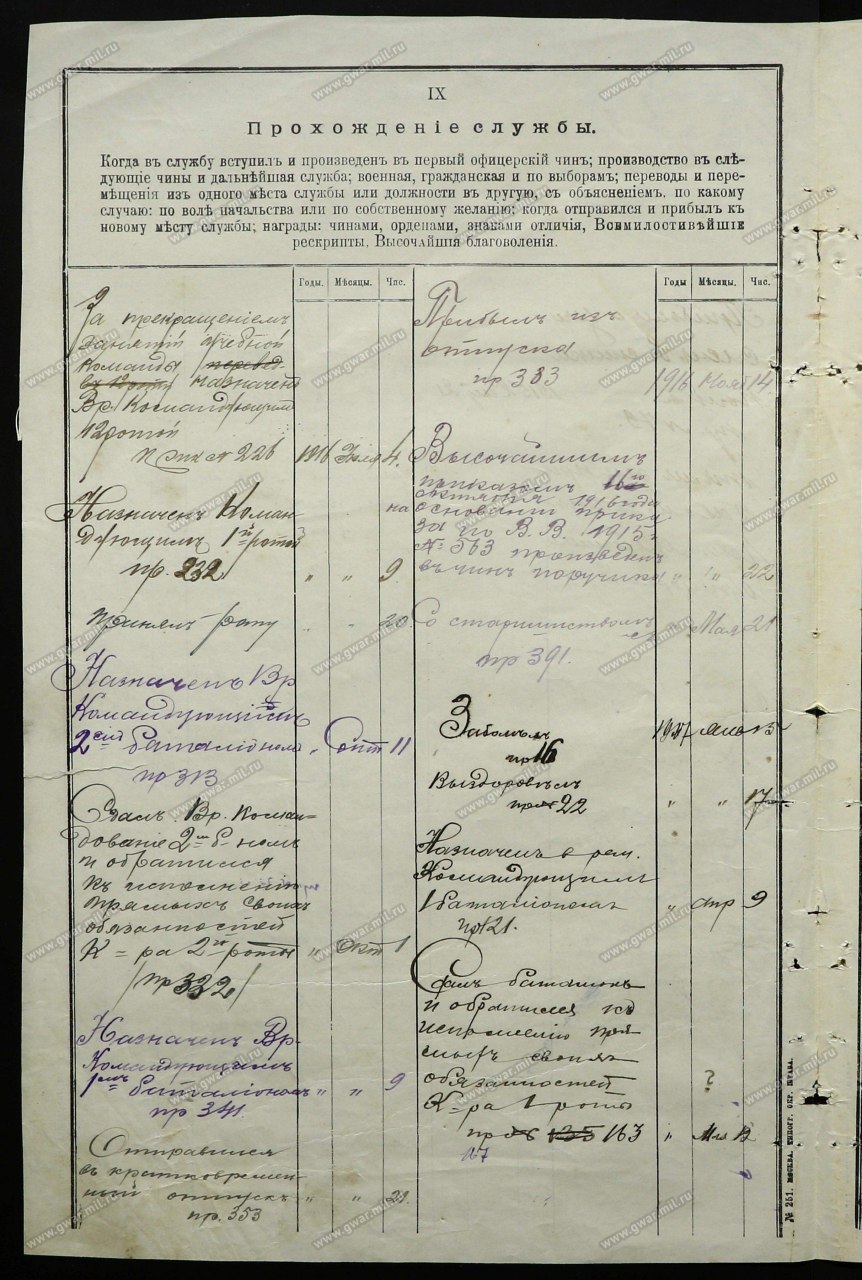 IX
Прохожденіе службы.
Когда въ службу вступилъ и произведенъ въ первый офицерскій чинъ; производство въ слѣ-
дующіе чины и дальнѣйшая служба; военная, гражданская и по выборамъ; переводы и пере-
мѣщенія изъ одного мѣста службы или должности въ другую, съ объясненіемъ, по какому
случаю: по волѣ начальства или по собственному желанію; когда отправился и прибылъ къ
новому мѣсту службы; награды: чинами, орденами, знаками отличія, Всемилостивѣйшіе
рескрипты, Высочайшія благоволенія.
Годы. Мѣсяцы. Чис.
За прекращеніемъ
занятій учебной
команды перевед.
въ назначенъ
Вр. Командующимъ
12 ротой
226 1916 Іюля 4.
Назначенъ Коман-
дующимъ 1й ротой
пр. 232 " " 9
Принялъ роту 20
Назначенъ Вр
Командующимъ
2мъ баталіономъ " Сент 11
пр 313
Сдалъ Вр. Коман-
дованіе 2мъ б-номъ
и обратился
къ исполненію
прямыхъ своихъ
обязанностей
К=ра 2й роты " Окт 1
пр 332
Назначенъ Вр.
Командующимъ
баталіономъ " " 9
пр 341.
Отправился
въ кратковремен-
ный отпускъ " " 21
пр. 353
Годы Мѣсяцы. Чис.
Прибылъ изъ
отпуска
пр 383 1916 Нояб 14
Высочайшимъ
приказомъ 16го
октября 1916 года
на основаніи прика
за по В. В. 1915 г.
№ 563 произведенъ
въ чинъ поручика " " 22
Со старшинствомъ
съ " Мая 21
пр 391.
Заболѣлъ 1917 Янв 15
пр 16
Выздоровѣлъ
пр 22 " " 17
Назначенъ врем.
Командующимъ
1 баталіономъ " Апр 9
пр 121.
Сдалъ баталіонъ
и обратился къ
исполненію пря-
мыхъ своихъ
обязанностей ?
К=ра 1 роты
пр 155 163 " Мая
167
№ 251. МОСКВА. ТИПОГР. ОКР. ШТАБА.
www.gwar.mil.ru